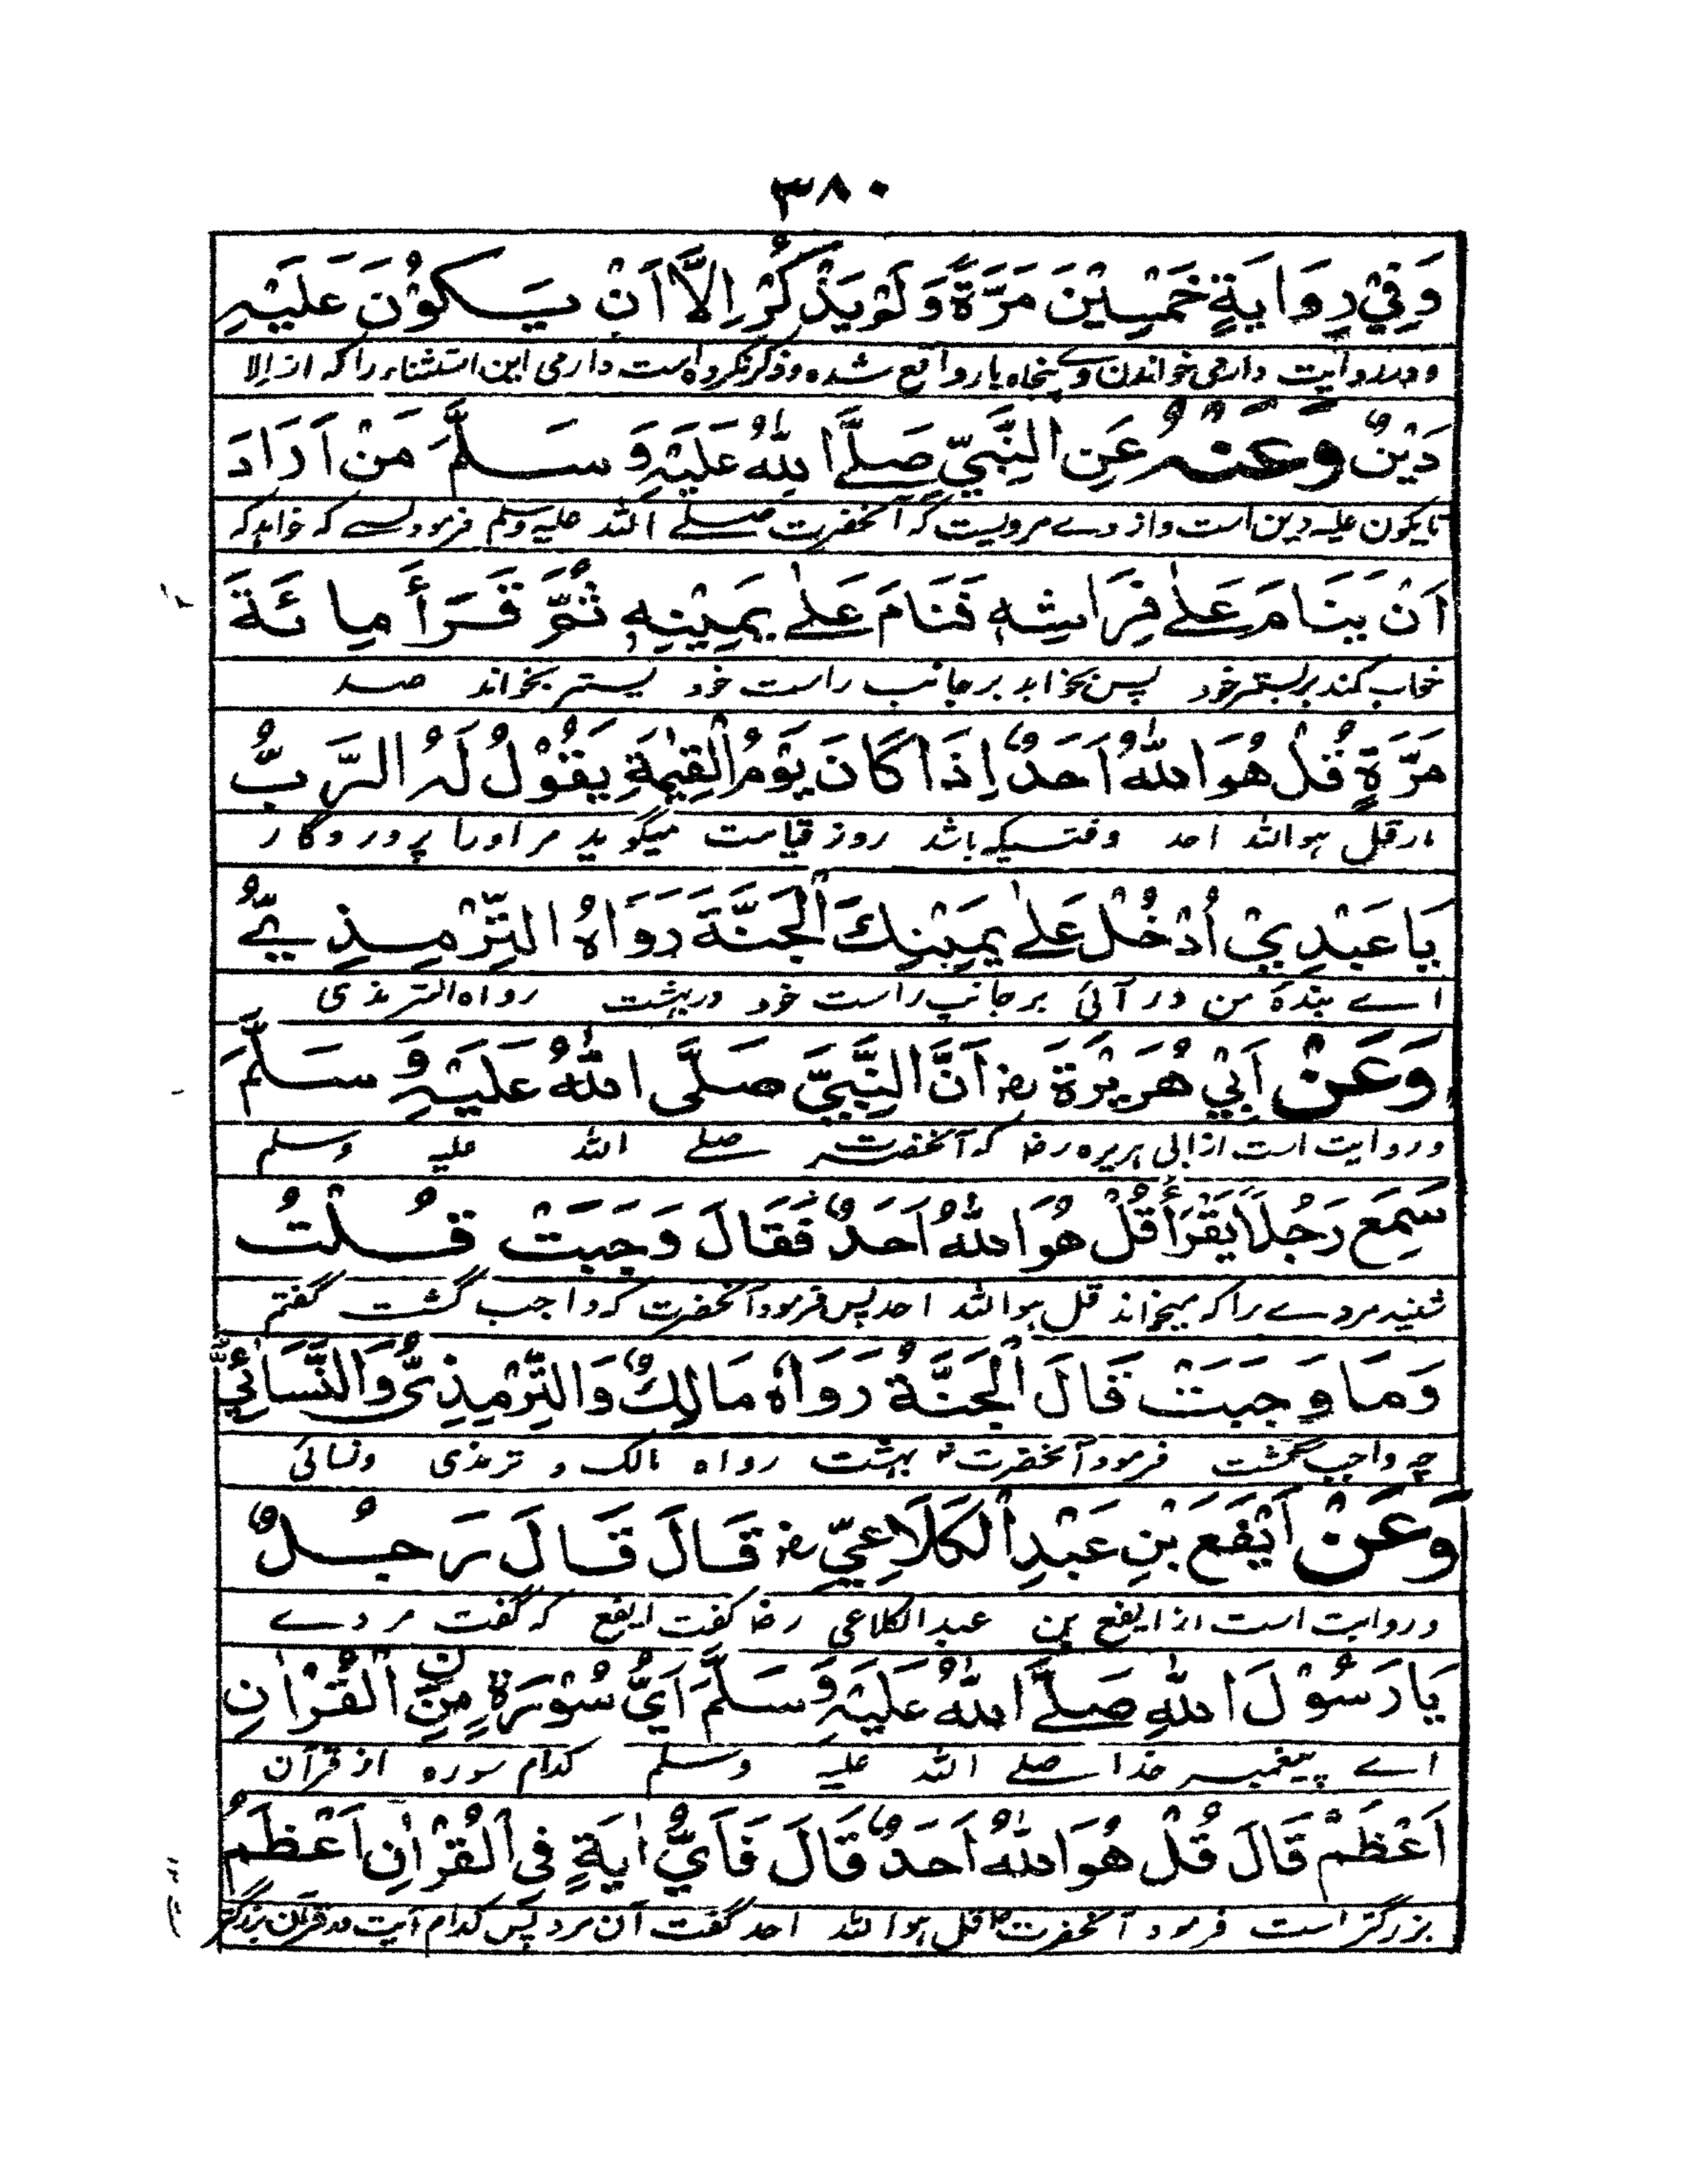 ٣٨٠
وَفِيْ رِوَايَةٍ خَمْسِيْنَ مَرَّةً وَلَمْ يَذْكُرْ اِلَّا اَنْ يَكُوْنَ عَلَيْهِ
ودر روایت دارمی خواندن وے پنجاه بار واقع شده وذکر نکرده است دارمی این استثناء را که از الا
دَيْنٌ وَعَنْهُ عَنِ النَّبِيِّ صَلَّے اللهُ عَلَيْهِ وَسَلَّمَ مَنْ اَرَادَ
تا یکون علیه دین است واز وے مرویست که آنحضرت صلے الله علیه وسلم فرمود کسے که خواهد که
اَنْ يَنَامَ عَلٰے فِرَاشِهٖ فَنَامَ عَلٰے يَمِيْنِهٖ ثُمَّ قَرَأَ مِائَةَ
خواب کند بر بستر خود پس بخوابد بر جانب راست خود پستر بخواند صد
مَرَّةٍ قُلْ هُوَ اللهُ اَحَدٌ اِذَا كَانَ يَوْمُ الْقِيٰمَةِ يَقُوْلُ لَهُ الرَّبُّ
بار قل هو الله احد وقتیکه باشد روز قیامت میگوید مر اورا پروردگار
يَا عَبْدِيْ اُدْخُلْ عَلٰے يَمِيْنِكَ الْجَنَّةَ رَوَاهُ التِّرْمِذِيُّ
اے بندۀ من در آئی بر جانب راست خود در بهشت رواه الترمذی
وَعَنْ اَبِيْ هُرَيْرَةَ رض اَنَّ النَّبِيَّ صَلَّى اللهُ عَلَيْهِ وَسَلَّمَ
وروایت است از ابی هریره رض که آنحضرت صلے الله علیه وسلم
سَمِعَ رَجُلًا يَقْرَأُ قُلْ هُوَ اللهُ اَحَدٌ فَقَالَ وَجَبَتْ قُلْتُ
شنید مردے را که میخواند قل هو الله احد پس فرمود آنحضرت که واجب گشت گفتم
وَمَا وَجَبَتْ قَالَ الْجَنَّةُ رَوَاهُ مَالِكٌ وَالتِّرْمِذِىُّ وَالنَّسَائِيُّ
چه واجب گشت فرمود آنحضرت بهشت رواه مالک و ترمذی ونسائی
وَعَنْ اَيْفَعَ بْنِ عَبْدِ الْكَلَاعِيِّ رض قَالَ قَالَ رَجُلٌ
وروایت است از ایفع بن عبد الکلاعی رض گفت ایفع که گفت مردے
يَا رَسُوْلَ اللهِ صَلَّے اللهُ عَلَيْهِ وَسَلَّمَ اَيُّ سُوْرَةٍ مِنَ الْقُرْاٰنِ
اے پیغمبر خدا صلے الله علیه وسلم کدام سوره از قرآن
اَعْظَمُ قَالَ قُلْ هُوَ اللهُ اَحَدٌ قَالَ فَاَيُّ اٰيَةٍ فِي الْقُرْاٰنِ اَعْظَمُ
بزرگتر است فرمود آنحضرت قل هو الله احد گفت آن مرد پس کدام آیت در قرآن بزرگتر